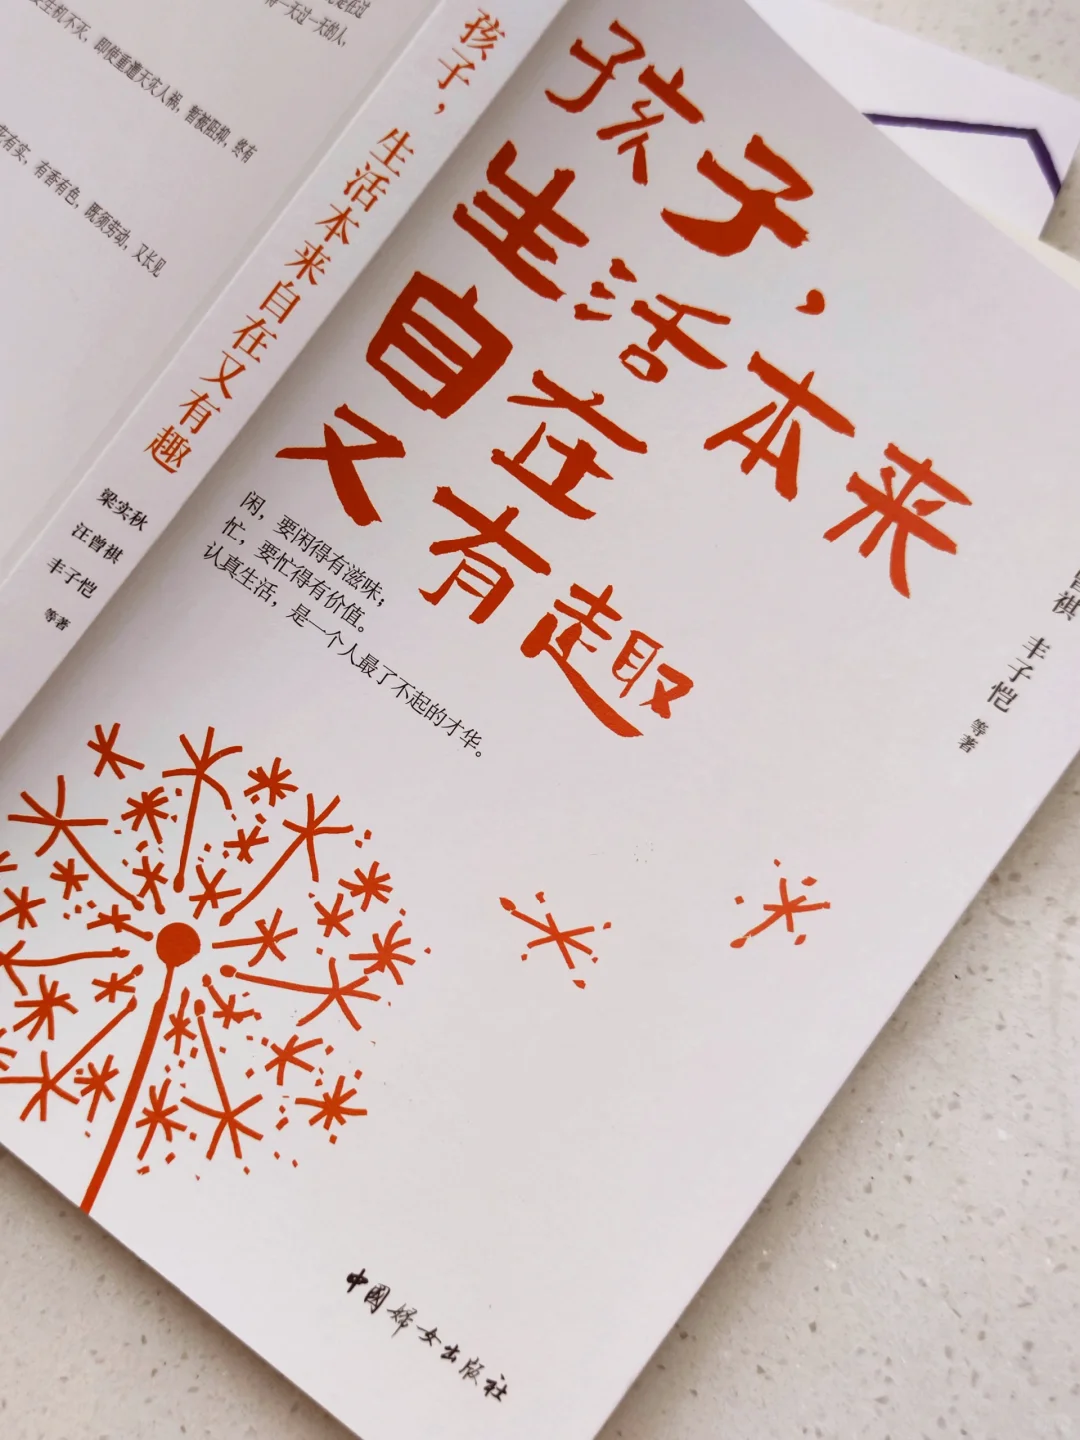 孩子，
生活本来
自在
又有趣
闲，要闲得有滋味；
忙，要忙得有价值。
认真生活，是一个人最了不起的才华。
曾祺 丰子恺 等著
中國婦女出版社
孩子，生活本来自在又有趣
梁实秋
汪曾祺
丰子恺
等著
一天过一天的人，
生机不灭，即使重遭天灾人祸，暂被阻抑，终有
有实，有香有色，既须劳动，又长见